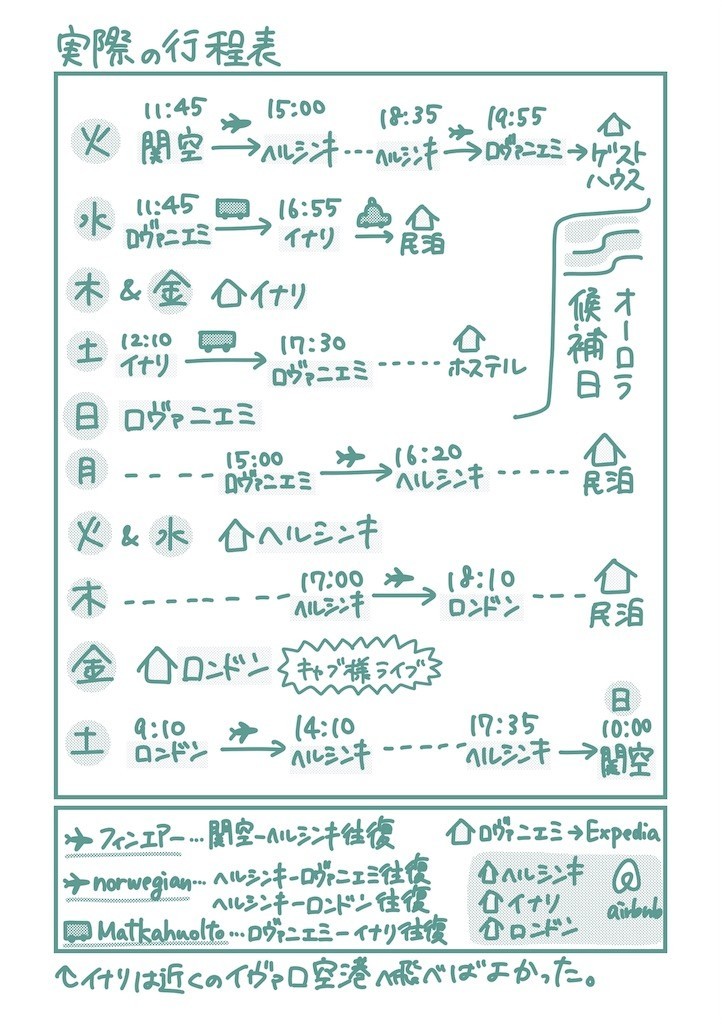 実際の行程表
11:45 15:00 18:35 19:55
火 関空 ヘルシンキ ヘルシンキ ロヴァニエミ ゲスト
ハウス
11:45 16:55
水 ロヴァニエミ イナリ 民泊
オーロラ
候補日
木 & 金 イナリ
12:10 17:30
土 イナリ ロヴァニエミ ホステル
日 ロヴァニエミ
15:00 16:20
月 ロヴァニエミ ヘルシンキ 民泊
火 & 水 ヘルシンキ
17:00 18:10
木 ヘルシンキ ロンドン 民泊
金 ロンドン キャブ様ライブ
日
9:10 14:10 17:35 10:00
土 ロンドン ヘルシンキ ヘルシンキ 関空
フィンエアー…関空ーヘルシンキ往復
norwegian…ヘルシンキーロヴァニエミ往復
ヘルシンキーロンドン往復
Matkahuolto…ロヴァニエミーイナリ往復
ロヴァニエミ→Expedia
ヘルシンキ
イナリ
ロンドン
airbnb
↑イナリは近くのイヴァロ空港へ飛べばよかった。